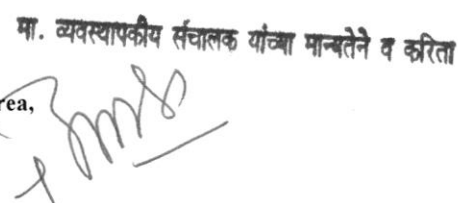 मा. व्यवस्थापकीय संचालक यांच्या मान्यतेने व करिता
rea,